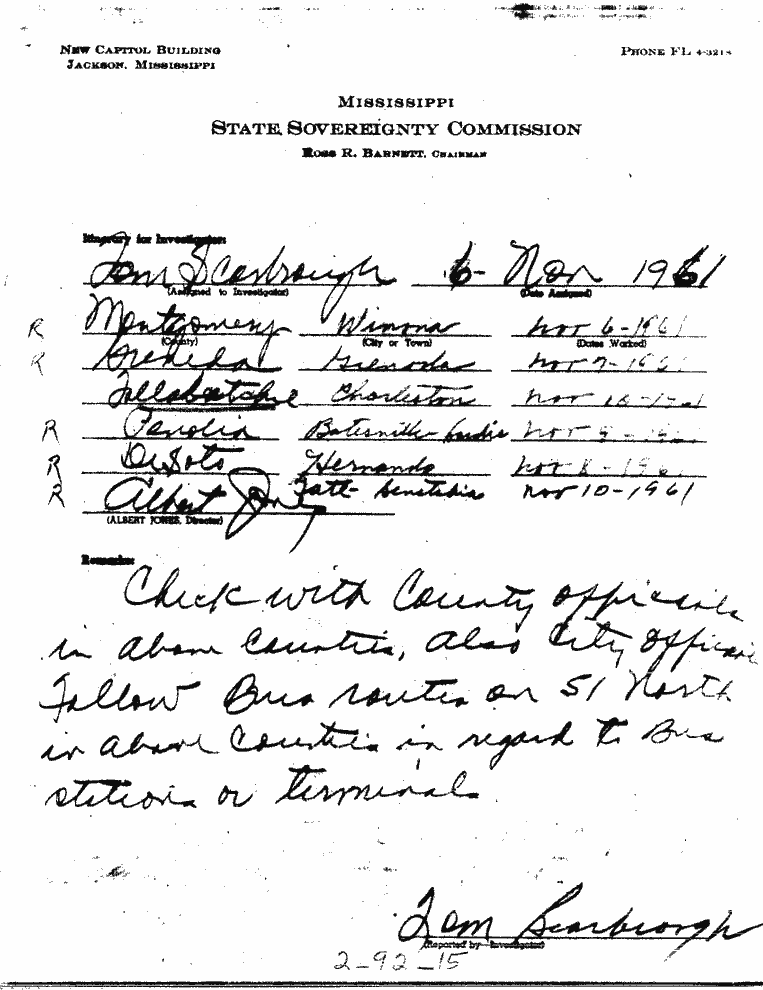 NEW CAPITOL BUILDING
JACKSON, MISSISSIPPI
PHONE FL 4-3218
MISSISSIPPI
STATE SOVEREIGNTY COMMISSION
ROSS R. BARNETT, CHAIRMAN
Itinerary for Investigator:
Tom Scarbrough 6- Nov 1961
(Assigned to Investigator) (Date Assigned)
R Montgomery Winona Nov 6-1961
(County) (City or Town) (Dates Worked)
R Grenada Grenada Nov 7-1961
Tallahatchie Charleston Nov
R Panola Batesville- Nov 9-1961
R DeSoto Hernando Nov 8-1961
R Tate- Senatobia Nov 10-1961
Albert Jones
(ALBERT JONES, Director)
Remarks:
Check with County officials
in above Counties, also City officials
Follow Bus routes on 51 North
in above Counties in regard to Bus
stations or terminals
Tom Scarbrough
(Reported by Investigator)
2-92-15